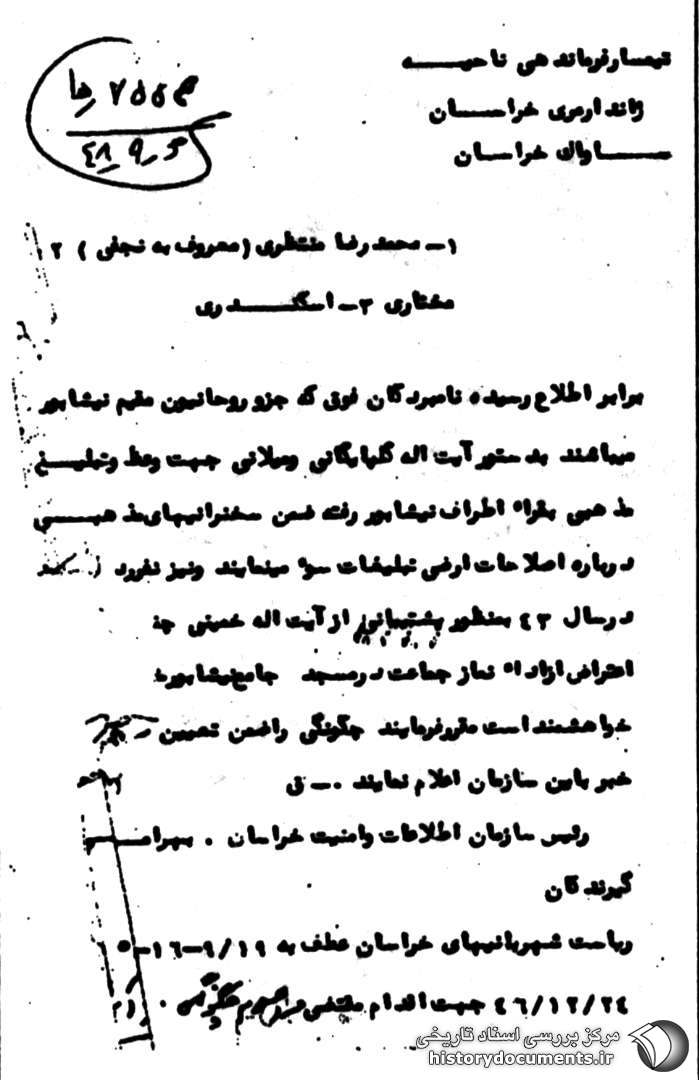 تیمسار فرماندهی ناحیه
۷۵۵۳ / ها
ژاندارمری خراسان
۴۸٫۹٫۳
ساواک خراسان
۱ـ محمد رضا منتظری (معروف به نجفی) ۲
مختاری ۳ـ اسکندری
برابر اطلاع رسیده نامبردگان فوق که جزو روحانیون مقیم نیشابور
میباشند بدستور آیت اله گلپایگانی ومیلانی جهت وعظ وتبلیغ
مذهبی بقراء اطراف نیشابور رفته ضمن سخنرانیهای مذهبی
درباره اصلاحات ارضی تبلیغات سوء مینمایند ونیز نفر
درسال ۴۳ بمنظور پشتیبانی از آیت اله خمینی
اعتراض ازاداء نماز جماعت درمسجد جامع نیشابور
خواهشمند است مقررفرمایند چگونگی راضمن تعیین
خبر باین سازمان اعلام نمایند ۰ـ ق
رئیس سازمان اطلاعات وامنیت خراسان . بهرامی
گیرندگان
ریاست شهربانیهای خراسان عطف به ۹/۱۹ـ۱۶ـ۵
۴۶/۱۲/۲۴ جهت اقدام مقتضی
مرکز بررسی اسناد تاریخی
historydocuments.ir